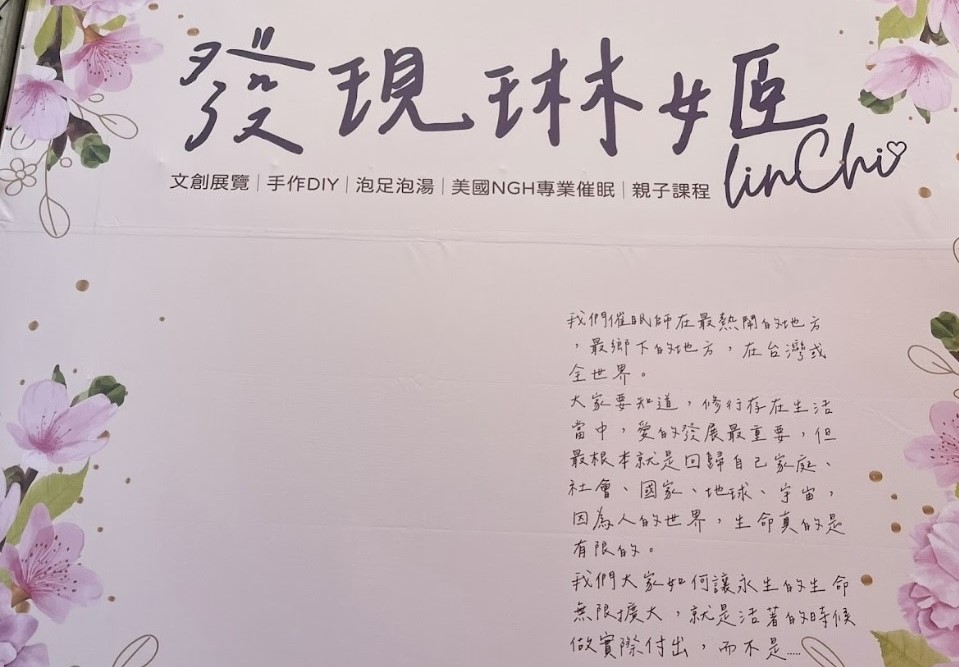 發現琳姬
linChi
文創展覽|手作DIY|泡足泡湯|美國NGH專業催眠|親子課程
我們催眠師在最熱鬧的地方
，最鄉下的地方，在台灣或
全世界。
大家要知道，修行存在生活
當中，愛的發展最重要，但
最根本就是回歸自己家庭、
社會、國家、地球、宇宙，
因為人的世界，生命真的是
有限的。
我們大家如何讓永生的生命
無限擴大，就是活著的時候
做實際付出，而不是……